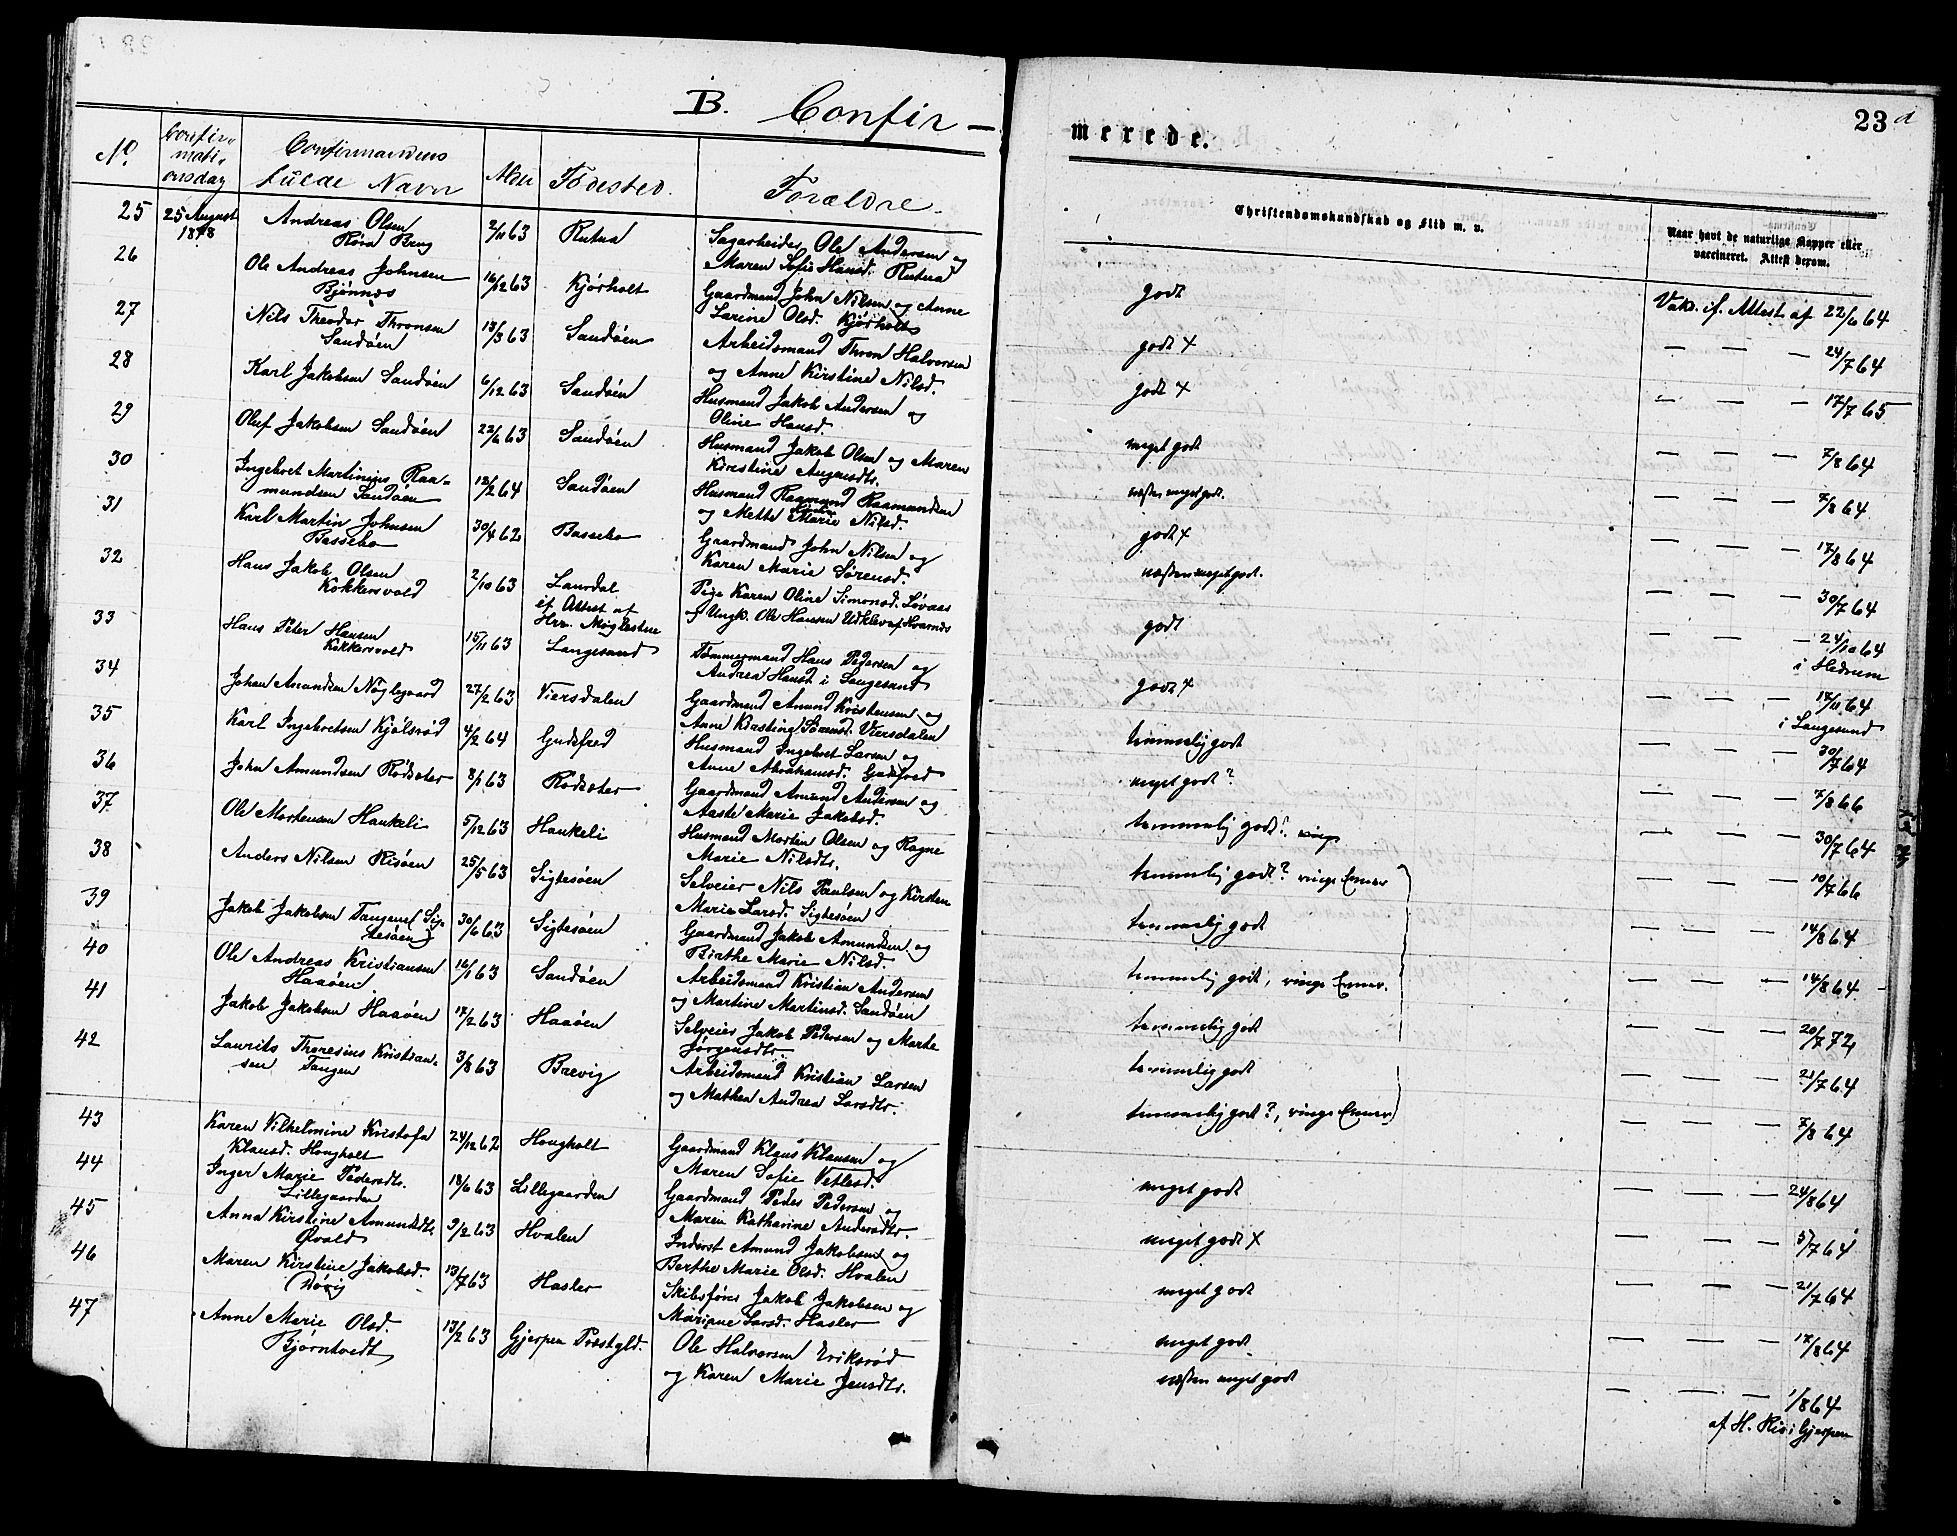 B. Confir-
merede.
23 d
No.
Confir-
mati-
onsday
Confirmandens
fulde Navn
Alder
Fødested.
Forældre.
Christendomskundskab og Flid m. v.
Naar havt de naturlige Kopper eller
vaccineret. Attest derom.
25
25 August
1878
Andreas Olsen
Røra Brug
2/11 63
Rutua
Sagarbeider Ole Andersen og
Maren Sofie Hansd. Rutua
godt
Vakc. if. Attest af 22/6 64
26
Ole Andreas Johnsen
Bjønnes
16/12 63
Kjørholt
Gaardmand John Nilsen og Anne
Larine Olsd. Kjørholt
godt x
— — — 24/7 64
27
Nils Theodor Thronsen
Sandøen
13/3 63
Sandøen
Arbeidsmand Thron Halvorsen
og Anne Kirstine Nilsd.
godt x
— — — 17/7 65
28
Karl Jakobsen Sandøen
6/12 63
Sandøen
Husmand Jakob Andersen og
Oline Hansd.
meget godt
— — — 7/8 64
29
Oluf Jakobsen Sandøen
22/6 63
Sandøen
Husmand Jakob Olsen og Maren
Kirstine Augusdtr.
næsten meget godt.
— — — 7/8 64
30
Ingebret Martinius Raa-
mundsen Sandøen
12/2 64
Sandøen
Husmand Raamund Raamundsen
og Mette Marie Nilsd.
godt x
— — — 17/8 64
31
Karl Martin Johnsen
Bassebo
30/4 62
Bassebo
Gaardmand John Nilsen og
Karen Marie Sørensd.
næsten meget godt.
— — — 30/7 64
32
Hans Jakob Olsen
Kokkersvold
2/10 63
Laurdal
if Attest af
Hrr. Møglestue
Pige Karen Oline Simonsd. Løvaas
og Ungk. Ole Hansen Udklev af Hvarnes
godt
— — — 24/10 64
i Hedrum
33
Hans Peter Hansen
Kokkersvold
15/11 63
Langesund
Tømmermand Hans Pedersen og
Andrea Hansd. i Langesund
godt x
— — — 14/11 64
i Langesund
34
Johan Amundsen Nøglegaard
27/2 63
Viersdalen
Gaardmand Amund Kristensen og
Anne Kirstine Sørensd. Viersdalen
temmelig godt
— — — 30/7 64
35
Karl Ingebretsen Kjølsrød
4/2 64
Gudsfred
Husmand Ingebret Larsen og
Anne Abrahamsd. Gudsfred
meget godt?
— — — 7/8 66
36
John Amundsen Rødsæter
8/1 63
Rødsæter
Gaardmand Amund Andersen og
Aaste Marie Jakobsd.
temmelig godt?
— — — 30/7 64
37
Ole Mortensen Haukeli
5/12 63
Haukeli
Husmand Morten Olsen og Ragne
Marie Nilsdtr.
temmelig godt? ringe Evner
— — — 10/7 66
38
Anders Nilsen Risøen
25/5 63
Sigtesøen
Selveier Nils Paulsen og Kirsten
Marie Larsd. Sigtesøen
temmelig godt
— — — 14/8 64
39
Jakob Jakobsen Tangene (Sig-
tesøen)
30/6 63
Sigtesøen
Gaardmand Jakob Amundsen og
Birthe Marie Nilsd.
temmelig godt, ringe Evner.
— — — 14/8 64
40
Ole Andreas Kristiansen
Haaøen
16/1 63
Sandøen
Arbeidsmand Kristian Andersen
og Martine Martinsd. Sandøen
temmelig godt
— — — 20/7 72
41
Jakob Jakobsen Haaøen
17/2 63
Haaøen
Selveier Jakob Pedersen og Marte
Jørgensdtr.
temmelig godt
— — — 21/7 64
42
Laurits Theresius Kristian-
sen Tangen
3/8 63
Brevig
Arbeidsmand Kristian Larsen
og Mathea Andrea Larsdtr.
temmelig godt?, ringe Evner
— — — 7/8 64
43
Karen Vilhelmine Kristofa
Klausd. Hougholt
24/12 62
Hougholt
Gaardmand Klaus Klausen og
Maren Sofie Vetlesd.
meget godt
— — — 24/8 64
44
Inger Marie Pedersdtr.
Lillegaarden
18/6 63
Lillegaarden
Gaardmand Peder Pedersen og
Maren Katharine Andersdtr.
meget godt x
— — — 5/7 64
45
Anna Kirstine Amundsdtr.
Øvald
9/2 63
Hvalen
Inderst Amund Jakobsen og
Berthe Marie Olsd. Hvalen
meget godt
— — — 21/7 64
46
Maren Kirstine Jakobsd.
Døvig
13/7 63
Hasler
Skibsfører Jakob Jakobsen og
Marine Larsd. Hasler
meget godt.
— — — 17/8 64
47
Anne Marie Olsd.
Bjørntvedt
13/2 63
Gjerpen Præstgld.
Ole Halvorsen Eriksrød
og Karen Marie Jensdtr.
næsten meget godt
— — — 1/8 64
af H. Riis i Gjerpen